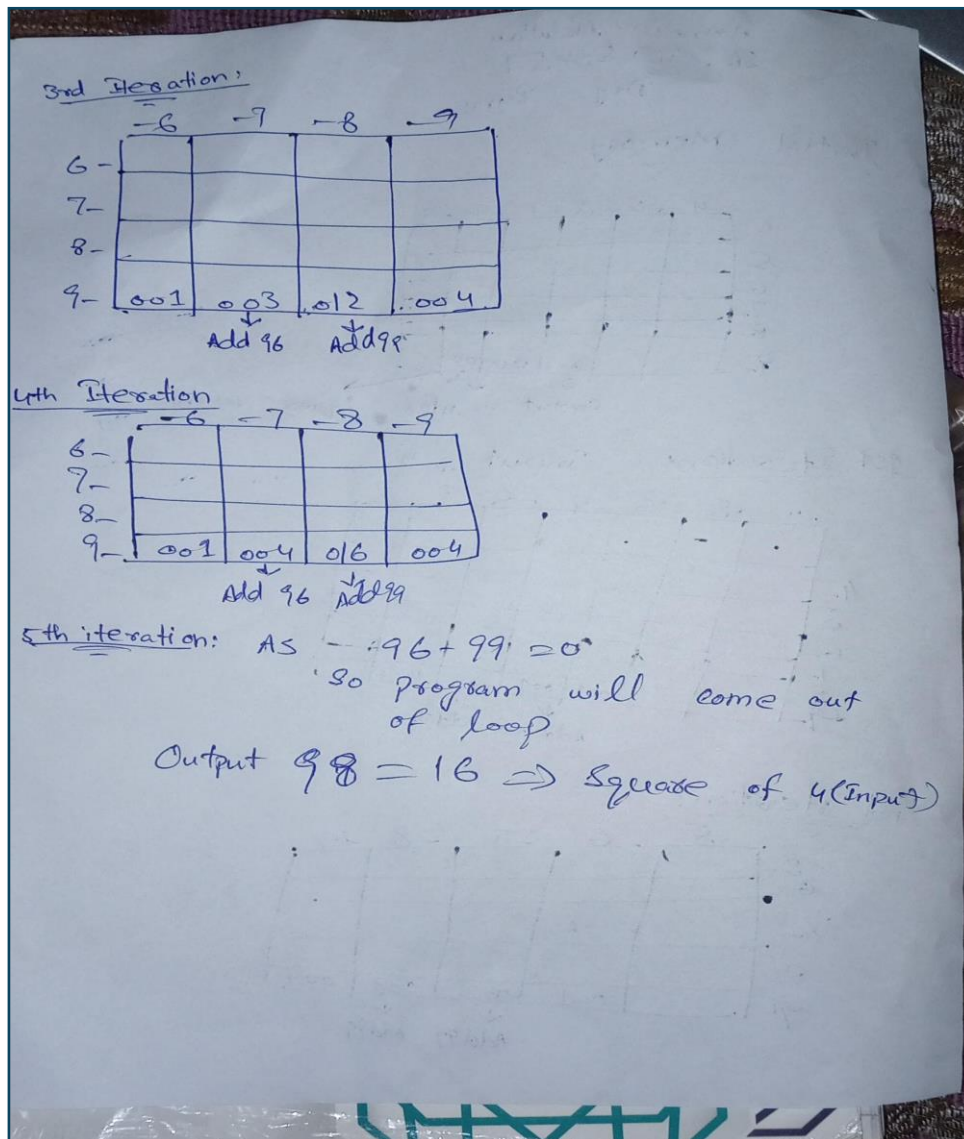 3rd Iteration:
-6 -7 -8 -9
6-
7-
8-
9- 001 003 012 004
Add 96 Add 99
4th Iteration
-6 -7 -8 -9
6-
7-
8-
9- 001 004 016 004
Add 96 Add 99
5th iteration: As - 96 + 99 = 0
So program will come out
of loop
Output 98 = 16 ⇒ Square of 4 (Input)